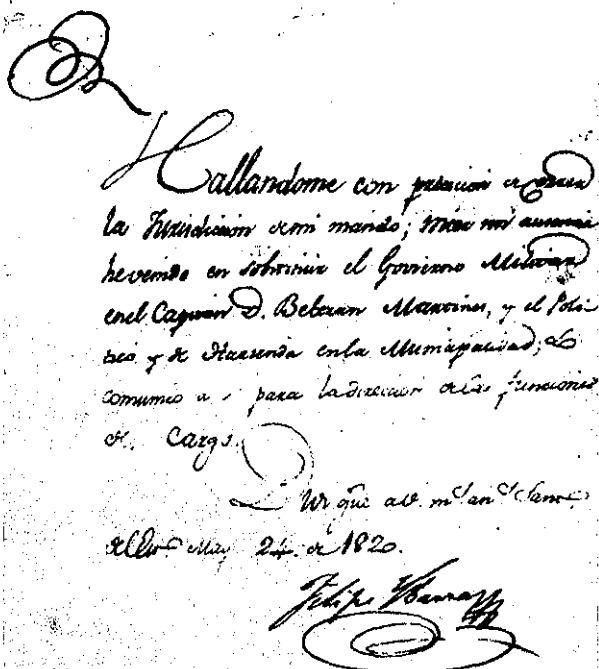 Hallandome con precicion de correr
la Jurisdicion de mi mando; mi ausencia
he venido en el Govierno Militar
en el Capitan D. Beltran Martines, y el Poli
tico y de Hazienda en la Municipalidad; Lo
comunico a para la direccion de las funciones
de Cargo.
Dios gūe a
Mayo 24. de 1820.
Felipe Ybarra